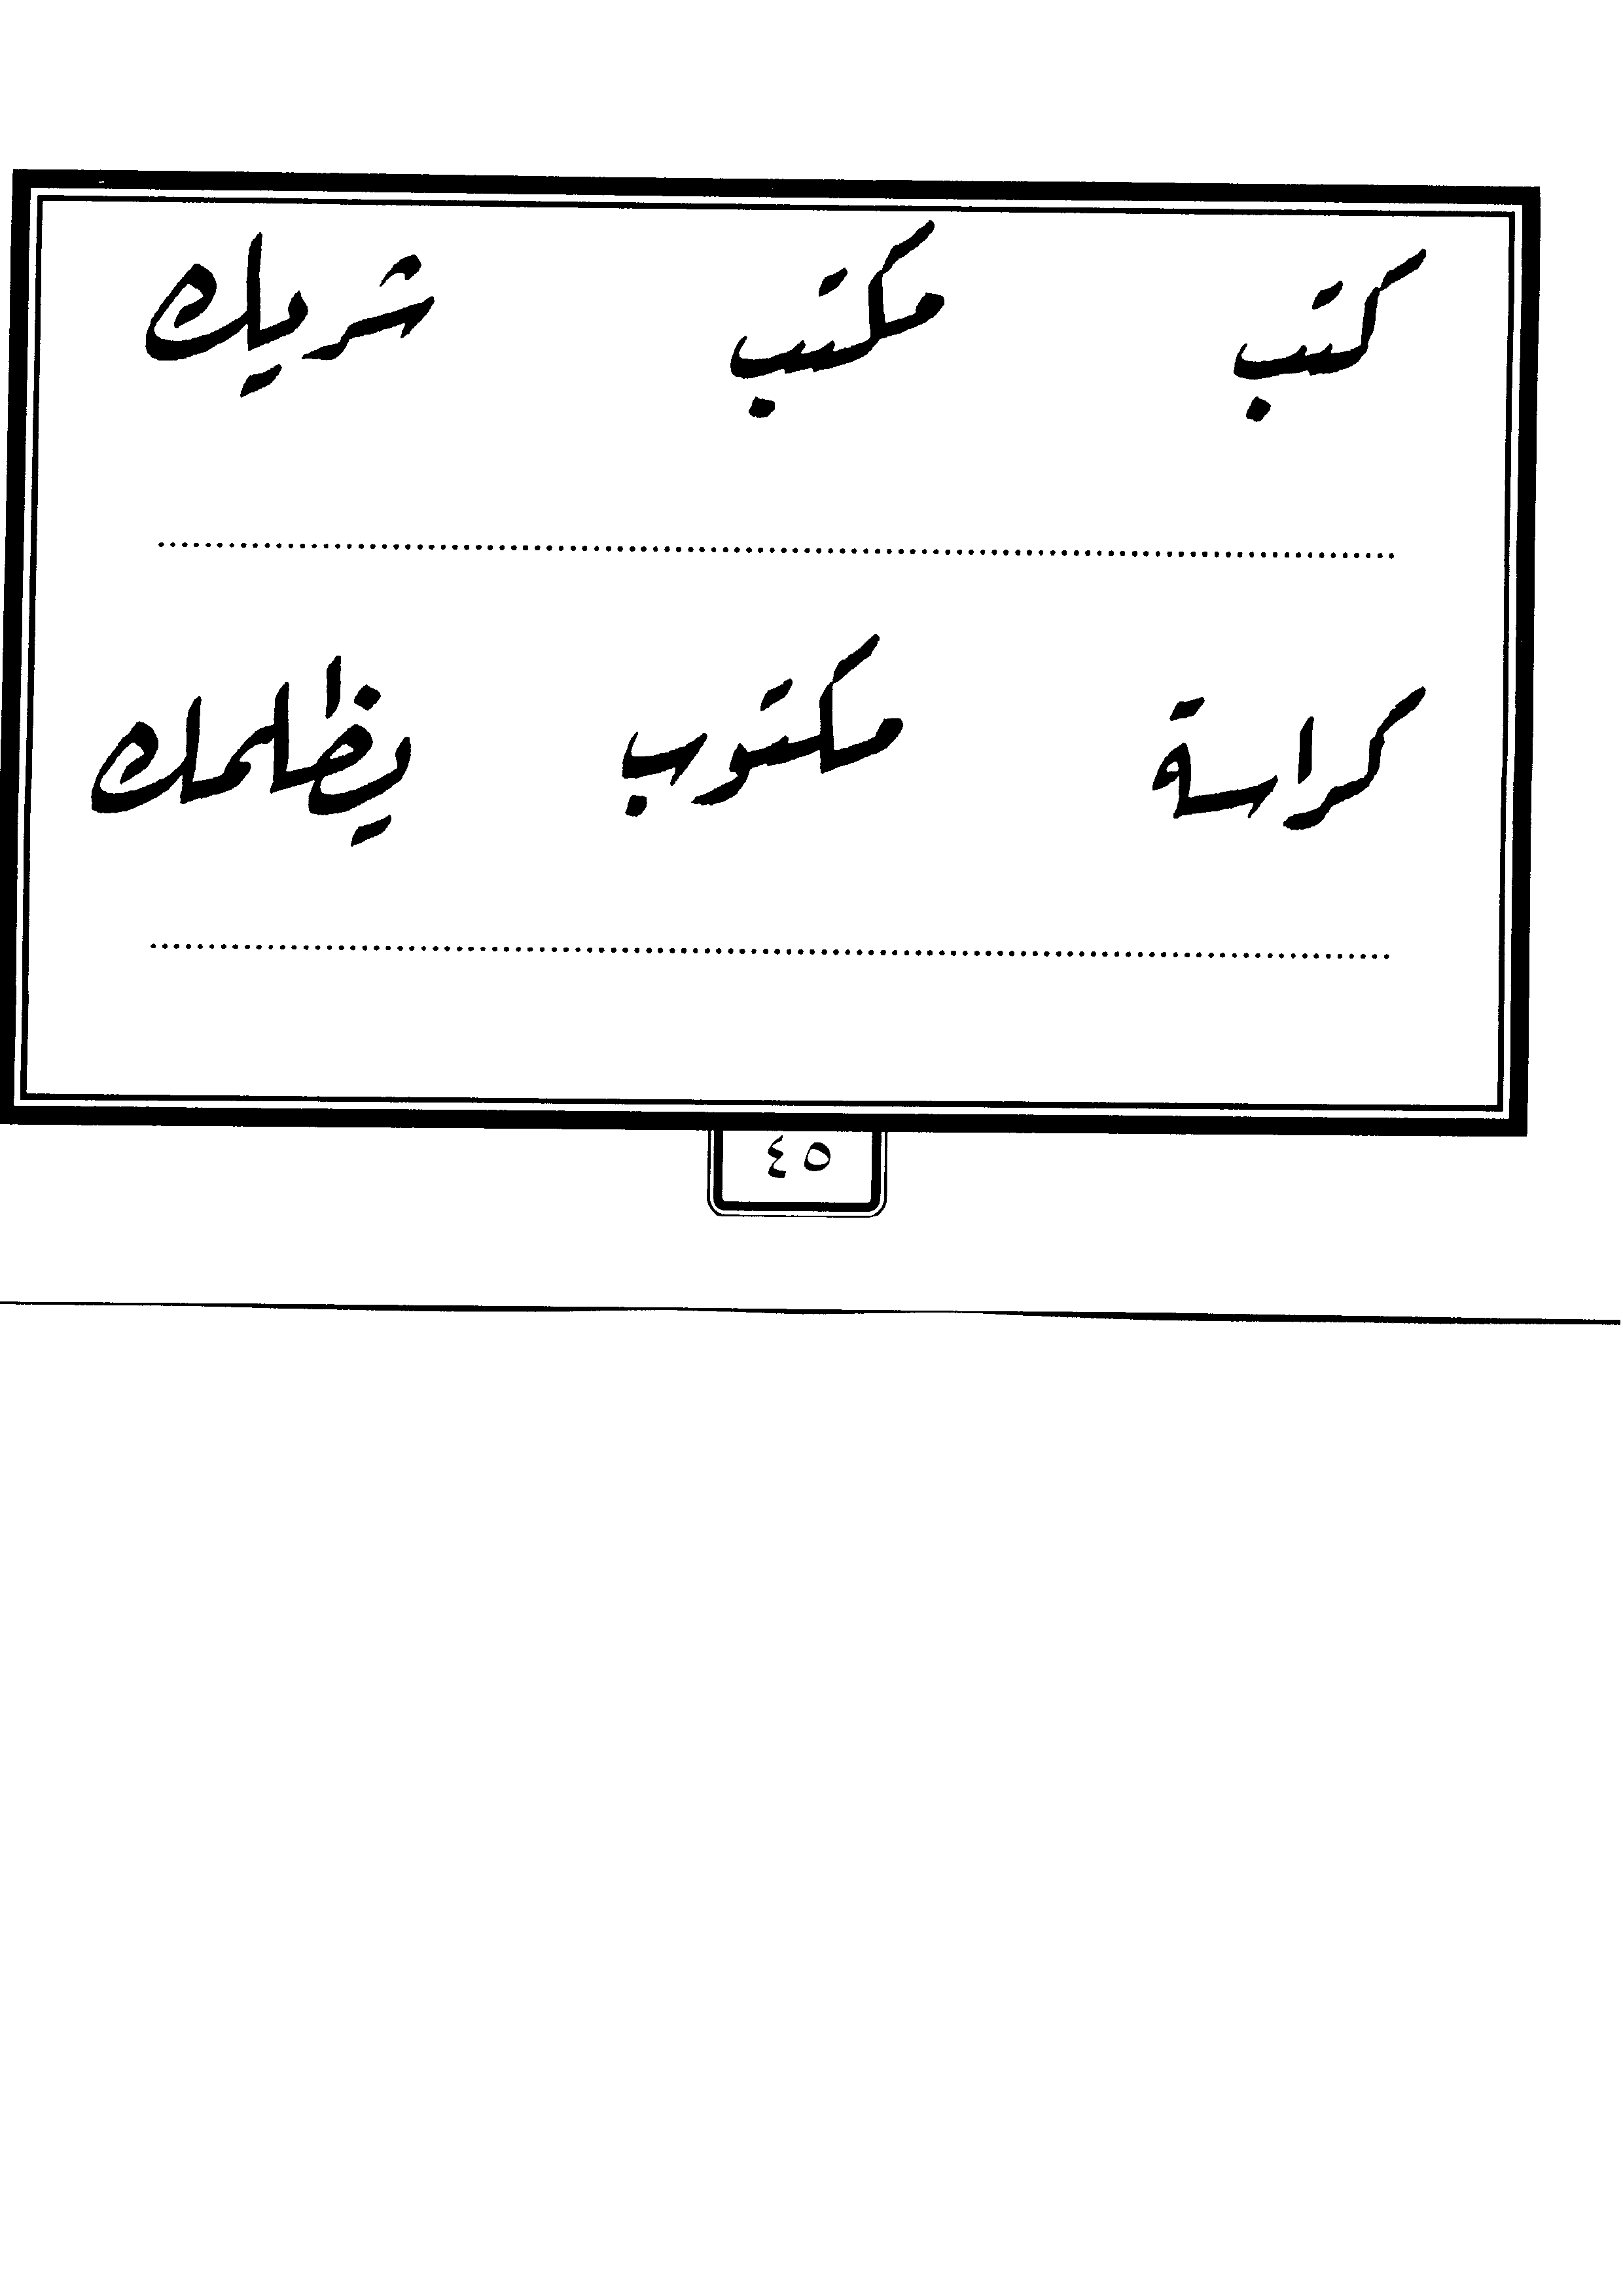 كتب مكتب شريك
كراسة مكتوب يظلمك
٤٥